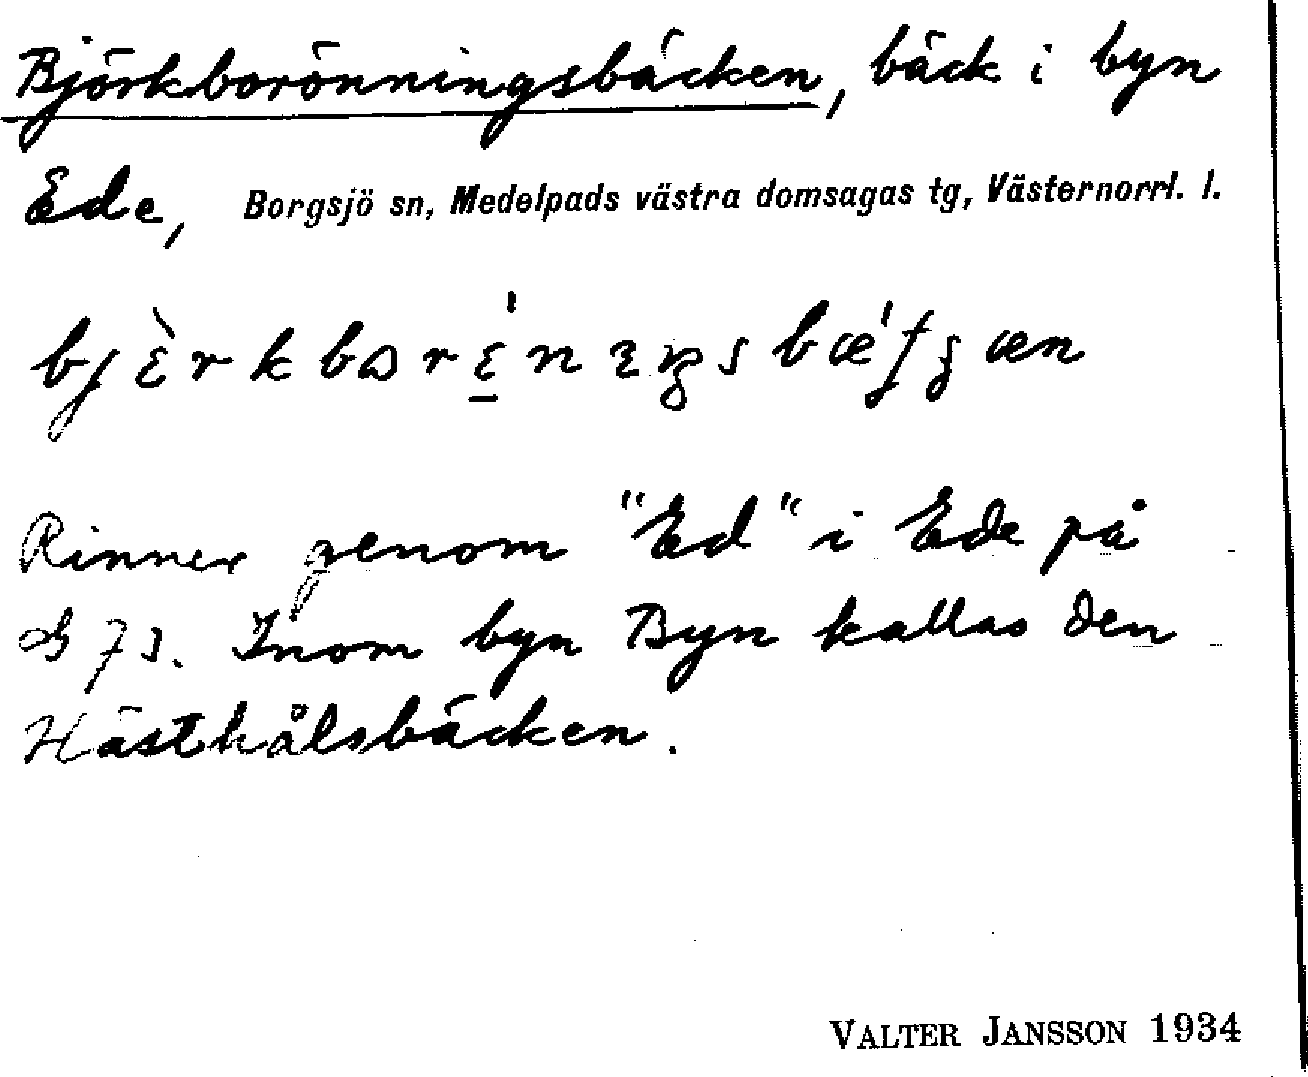 Björkborönningsbäcken, bäck i byn
Ede, Borgsjö sn, Medelpads västra domsagas tg, Västernorrl. l.
Rinner genom "Ed" i Ede på
Inom byn Byn kallas den
Hästhålsbäcken.
VALTER JANSSON 1934